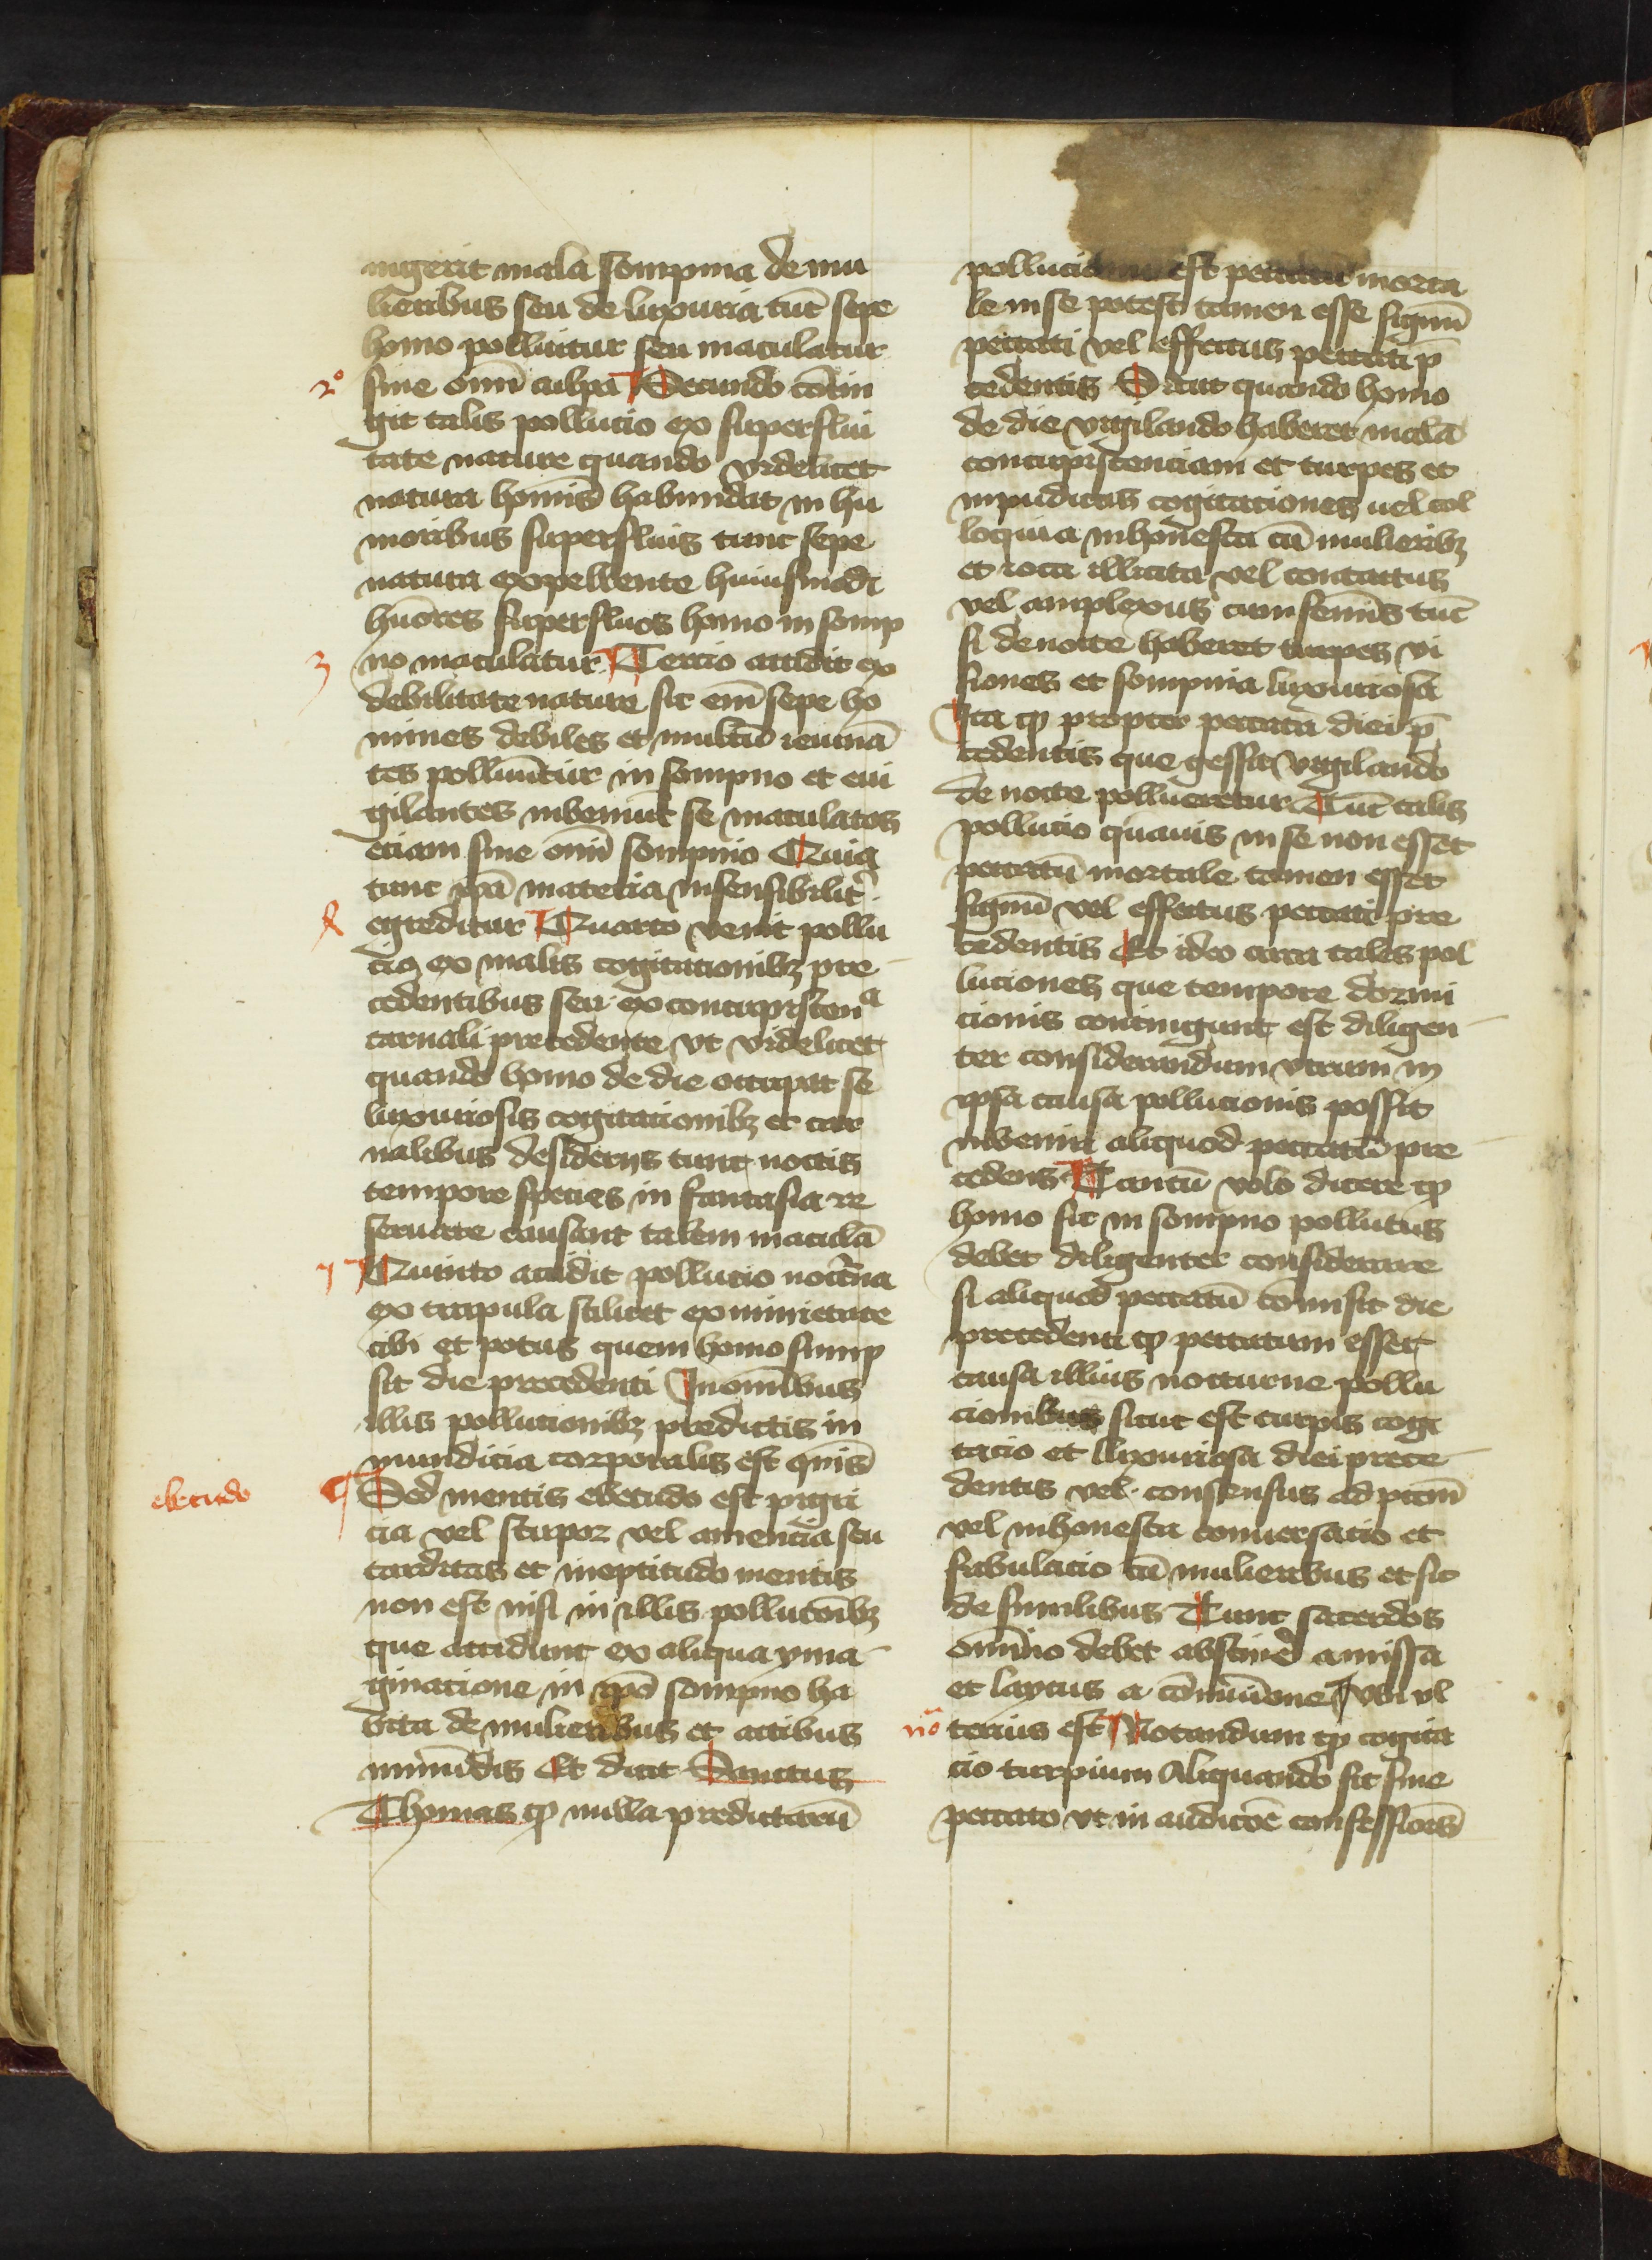 ingerit mala sompnia de mu
lieribus seu de luxuria tūc sepe
homo polluitur seu maculatur
2º sine omī culpa Secundo cōtin
git talis pollucio ex superflui
tate nature quando videlicet
natura homīs habundat in hu
moribus superfluis tunc sepe
natura expellente huiusmodi
hūores superfluos homo in somp
3 no maculatur Tercio accidit ex
debilitate nature sic em̄ sepe ho
mines debiles et multū ieiunā
tes polluūtur in sompno et eui
gilantes inveniūt se maculatos
eciam sine omī sompnio Quia
tunc ip̄a materia insensibilit̉
4 egreditur Quarto venit pollu
cio ex malis cogitacionibꝫ pre
cedentibus seu ex concupiscenᵃ
carnali precedente vt videlicet
quando homo de die occupat se
luxuriosis cogitacionibꝫ et car
nalibus desiderijs tunc noctis
tempore species in fantasia re
seruate causant talem maculā
5 Quinto accidit pollucio noct̉na
ex crapula scilicet ex nimietate
cibi et potus quem homo sump
sit die precedenti In omībus
illis pollucionibꝫ predictis in
mundicia corporalis est q̄mis
ebetudo Sed mentis ebetudo est pigri
cia vel stupor vel amencia seu
tarditas et ineptitudo mentis
non est nisi in illis pollucōibꝫ
que accidunt ex aliqua yma
ginacione in ip̄o sompno ha
bita de mulieribus et actibus
inmūdis Et dicit Sanctus
Thomas ꝙ nulla predictarū
pollucionum est peccatū morta
le in se potest tamen esse signū
peccati vel effectus peccati p̄
cedentis Sicut quando homo
de die vigilando haberet malā
concupiscenciam et turpes et
inpudicas cogitaciones uel col
loquia inhonesta cū mulieribꝫ
et ioca illicita vel contactus
vel amplexus cum femīs tūc
si de nocte haberet turpes vi
siones et sompnia luxuriosa
Ita ꝙ propter peccata diei p̄
cedentis que gessit vigilando
de nocte pollueretur Tūc talis
pollucio quāuis in se non esset
peccatū mortale tamen esset
signū vel effectus peccati pre
cedentis Et ideo circa tales pol
luciones que tempore dormi
cionis contingunt est diligen
ter considerandum vtrum in
ipsa causa pollucionis possit
inveniri aliquod peccatū pre
cedens Tantū volo dicere ꝙ
homo sic in sompno pollutus
debet diligenter considerare
si aliquod peccatū cōmisit die
precedenti ꝙ peccatum esset
causa illius nocturne pollu
cionibus sicut est turpis cogi
tacio et luxuriosa diei prece
dentis vel consensus ad pccm̄
vel inhonesta conuersacio et
fabulacio cū mulieribus et sic
de similibus Tunc sacerdos
omīno debet abstine͛ a missa
et laycus a cōmūione Vbi vl
nō terius est Notandum ꝙ cogita
cio turpium Aliquando fit sine
peccato vt in audicōe confessiōis